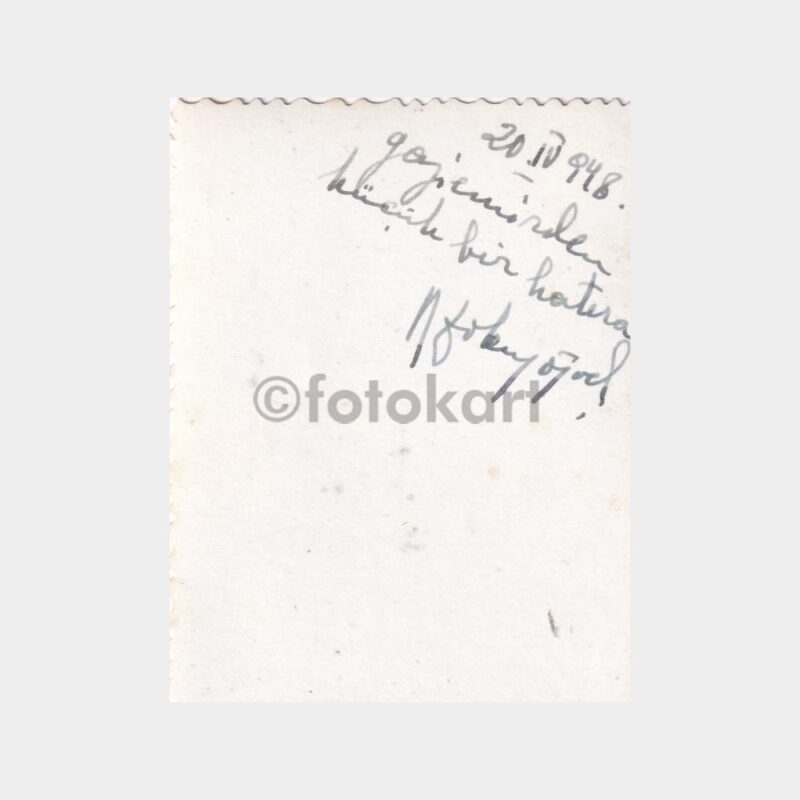 20 IV 948.
gaziemirden
küçük bir hatıra
©fotokart